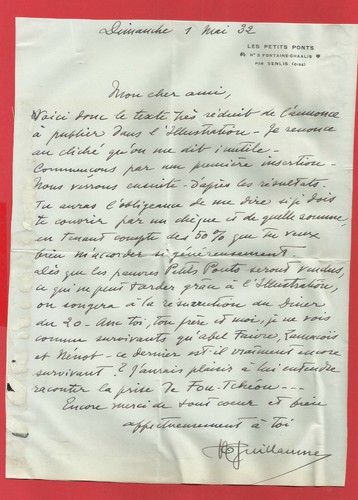 Dimanche 1 Mai 32
LES PETITS PONTS
N° 5 FONTAINE-CHAALIS
PAR SENLIS (OISE)
Mon cher ami,
Voici donc le texte très réduit de l'annonce
à publier dans l'Illustration - Je renonce
au cliché qu'on me dit inutile -
Commençons par une première insertion -
Nous verrons ensuite - D'après les résultats.
Tu auras l'obligeance de me dire si je dois
te couvrir par un chèque et de quelle somme,
en tenant compte des 50% que tu veux
bien m'accorder si généreusement
dès que les pauvres Petits Ponts seront vendus,
ce qui ne peut tarder grâce à l'Illustration,
on songera à la résurrection du Diner
du 20 - Avec toi, ton frère et moi, je ne vois
comme survivants qu'Abel Faivre, Zamacoïs
et Ninot - ce dernier est-il vraiment encore
survivant ? J'aurais plaisir à lui entendre
raconter la prise de Fou-Tchéou - - -
Encore merci de tout coeur et bien
affectueusement à toi
Guillaume